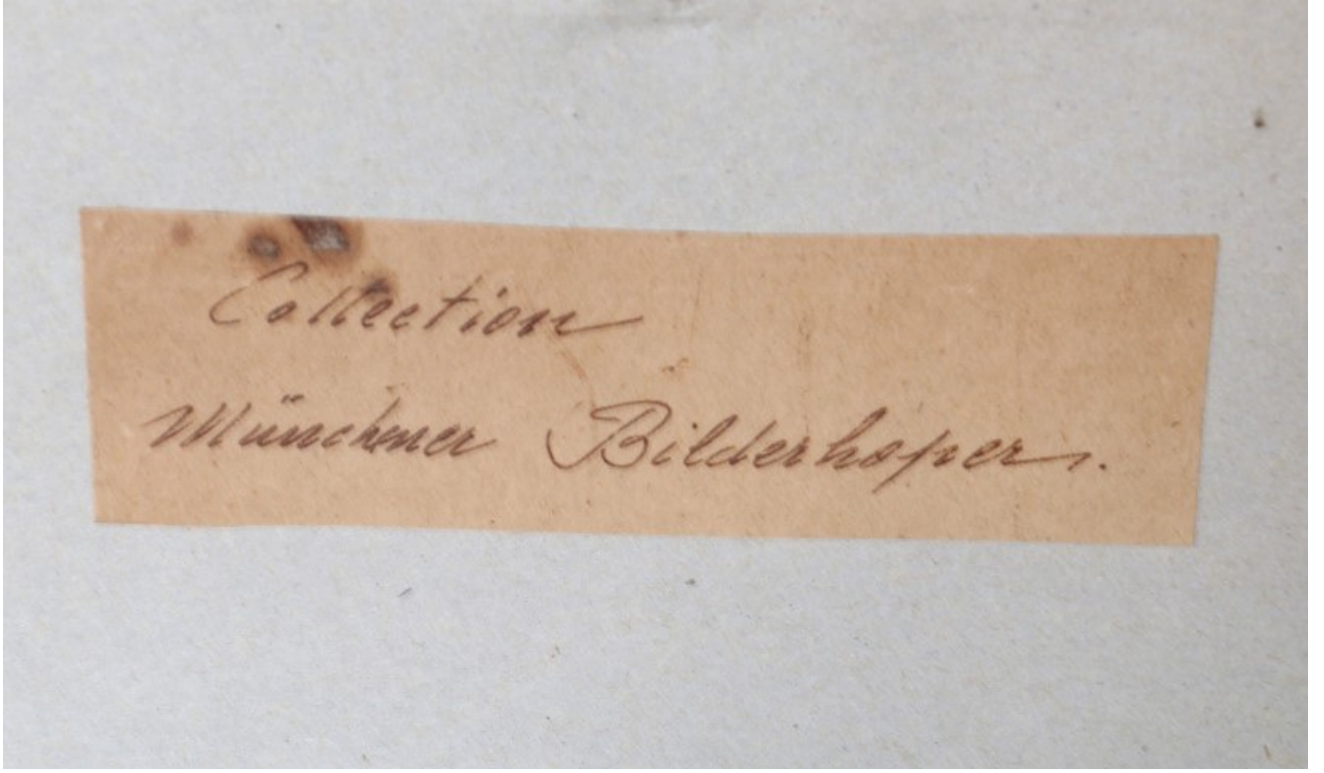 Collection
Münchener Bilderhoper.